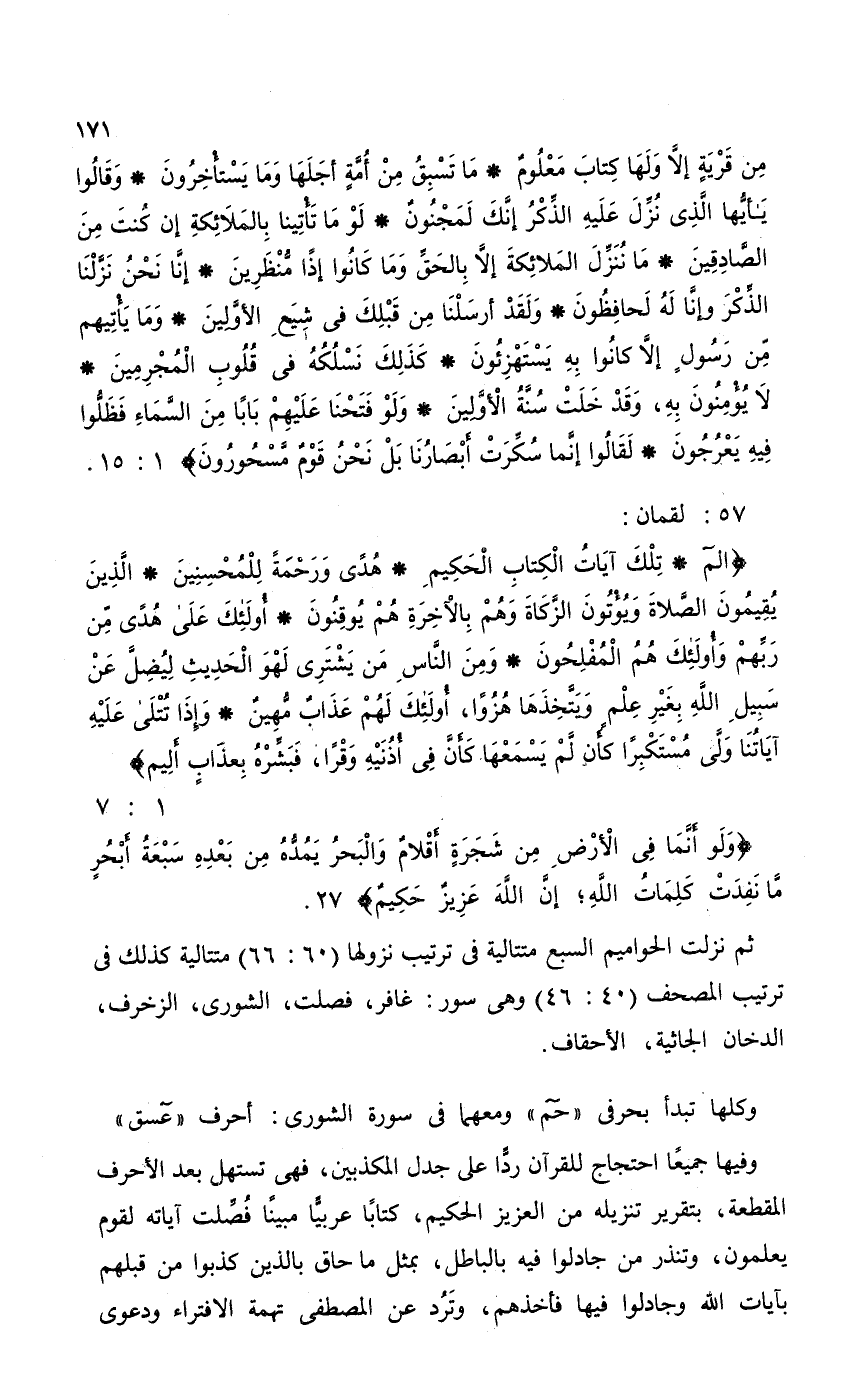 ١٧١
مِن قَرْيَةٍ إلاَّ وَلَهَا كِتابَ مَعْلُومٌ * مَا تَسْبِقُ مِنْ أُمَّةٍ أجَلَهَا وَمَا يَسْتأْخِرُونَ * وَقَالُوا
يَـٰأيُّها الَّذِى نُزِّلَ عَلَيهِ الذِّكْرُ إنَّكَ لَمَجْنُونٌ * لَوْ مَا تَأْتِينا بِالمَلَائِكةِ إن كُنتَ مِنَ
الصَّادِقِينَ * مَا نُنَزِّلَ المَلائِكةَ إلاَّ بِالحَقِّ وَمَا كَانُوا إذًا مُّنْظَرِينَ * إنَّا نَحْنُ نَزَّلْنَا
الذِّكْرَ وإنَّا لَهُ لَحافِظُونَ * وَلَقَدْ أرسَلْنَا مِن قَبْلِكَ فى شِيَعِ الأوَّلِينَ * وَمَا يَأْتِيهم
مِّن رَسُولٍ إلاَّ كانُوا بِهِ يَسْتَهْزِئُونَ * كَذَلِكَ نَسْلُكُهُ فى قُلُوبِ الْمُجْرِمِينَ *
لاَ يُؤْمِنُونَ بِهِ، وَقَدْ خَلَتْ سُنَّةُ الْأوَّلِينَ * وَلَوْ فَتَحْنَا عَلَيْهِمْ بَابًا مِنَ السَّمَاءِ فَظَلُّوا
فِيهِ يَعْرُجُونَ * لَقَالُوا إنَّما سُكِّرَتْ أَبْصَارُنَا بَلْ نَحْنُ قَوْمٌ مَّسْحُورُونَ﴾ ١ : ١٥ .
٥٧ : لقمان :
﴿المٓ * تِلْكَ آيَاتُ الْكِتابِ الْحَكِيمِ * هُدًى وَرَحْمَةً لِلْمُحْسِنِينَ * الَّذِينَ
يُقِيمُونَ الصَّلاةَ وَيُؤْتُونَ الزَّكَاةَ وَهُمْ بِالْآخِرَةِ هُمْ يُوقِنُونَ * أُولَئِكَ عَلَىٰ هُدًى مِّن
رَبِّهِمْ وَأُولَئِكَ هُمُ الْمُفْلِحُونَ * وَمِنَ النَّاسِ مَن يَشْتَرِى لَهْوَ الْحَدِيثِ لِيُضِلَّ عَنْ
سَبِيلِ اللَّهِ بِغَيْرِ عِلْمٍ وَيَتَّخِذَهَا هُزُوًا، أُولَئِكَ لَهُمْ عَذَابٌ مُّهِينٌ * وَإِذَا تُتْلَىٰ عَلَيْهِ
آيَاتُنَا وَلَّى مُسْتَكْبِرًا كأَن لَّمْ يَسْمَعْهَا كَأَنَّ فِى أُذُنَيْهِ وَقْرًا، فَبَشِّرْهُ بِعذَابٍ أَلِيم﴾
١ : ٧
﴿وَلَو أَنَّمَا فِى الْأرْضِ مِن شَجَرَةٍ أَقْلامٌ وَالْبَحرُ يَمُدُّهُ مِن بَعْدِهِ سَبْعَةُ أَبْحُرٍ
مَّا نَفِدَتْ كَلِمَاتُ اللَّهِ؛ إنَّ اللَّهَ عَزِيزٌ حَكِيمٌ﴾ ٢٧ .
ثم نزلت الحواميم السبع متتالية فى ترتيب نزولها (٦٠ : ٦٦) متتالية كذلك فى
ترتيب المصحف (٤٠ : ٤٦) وهى سور : غافر، فصلت، الشورى، الزخرف،
الدخان الجاثية، الأحقاف.
وكلها تبدأ بحرفى «حمٓ» ومعهما فى سورة الشورى : أحرف «عٓسق»
وفيها جميعًا احتجاج للقرآن ردًّا على جدل المكذبين، فهى تستهل بعد الأحرف
المقطعة، بتقرير تنزيله من العزيز الحكيم، كتابًا عربيًّا مبينًا فُصِّلت آياته لقوم
يعلمون، وتنذر من جادلوا فيه بالباطل، بمثل ما حاق بالذين كذبوا من قبلهم
بآيات الله وجادلوا فيها فأخذهم، وتَرُد عن المصطفى تهمة الافتراء ودعوى